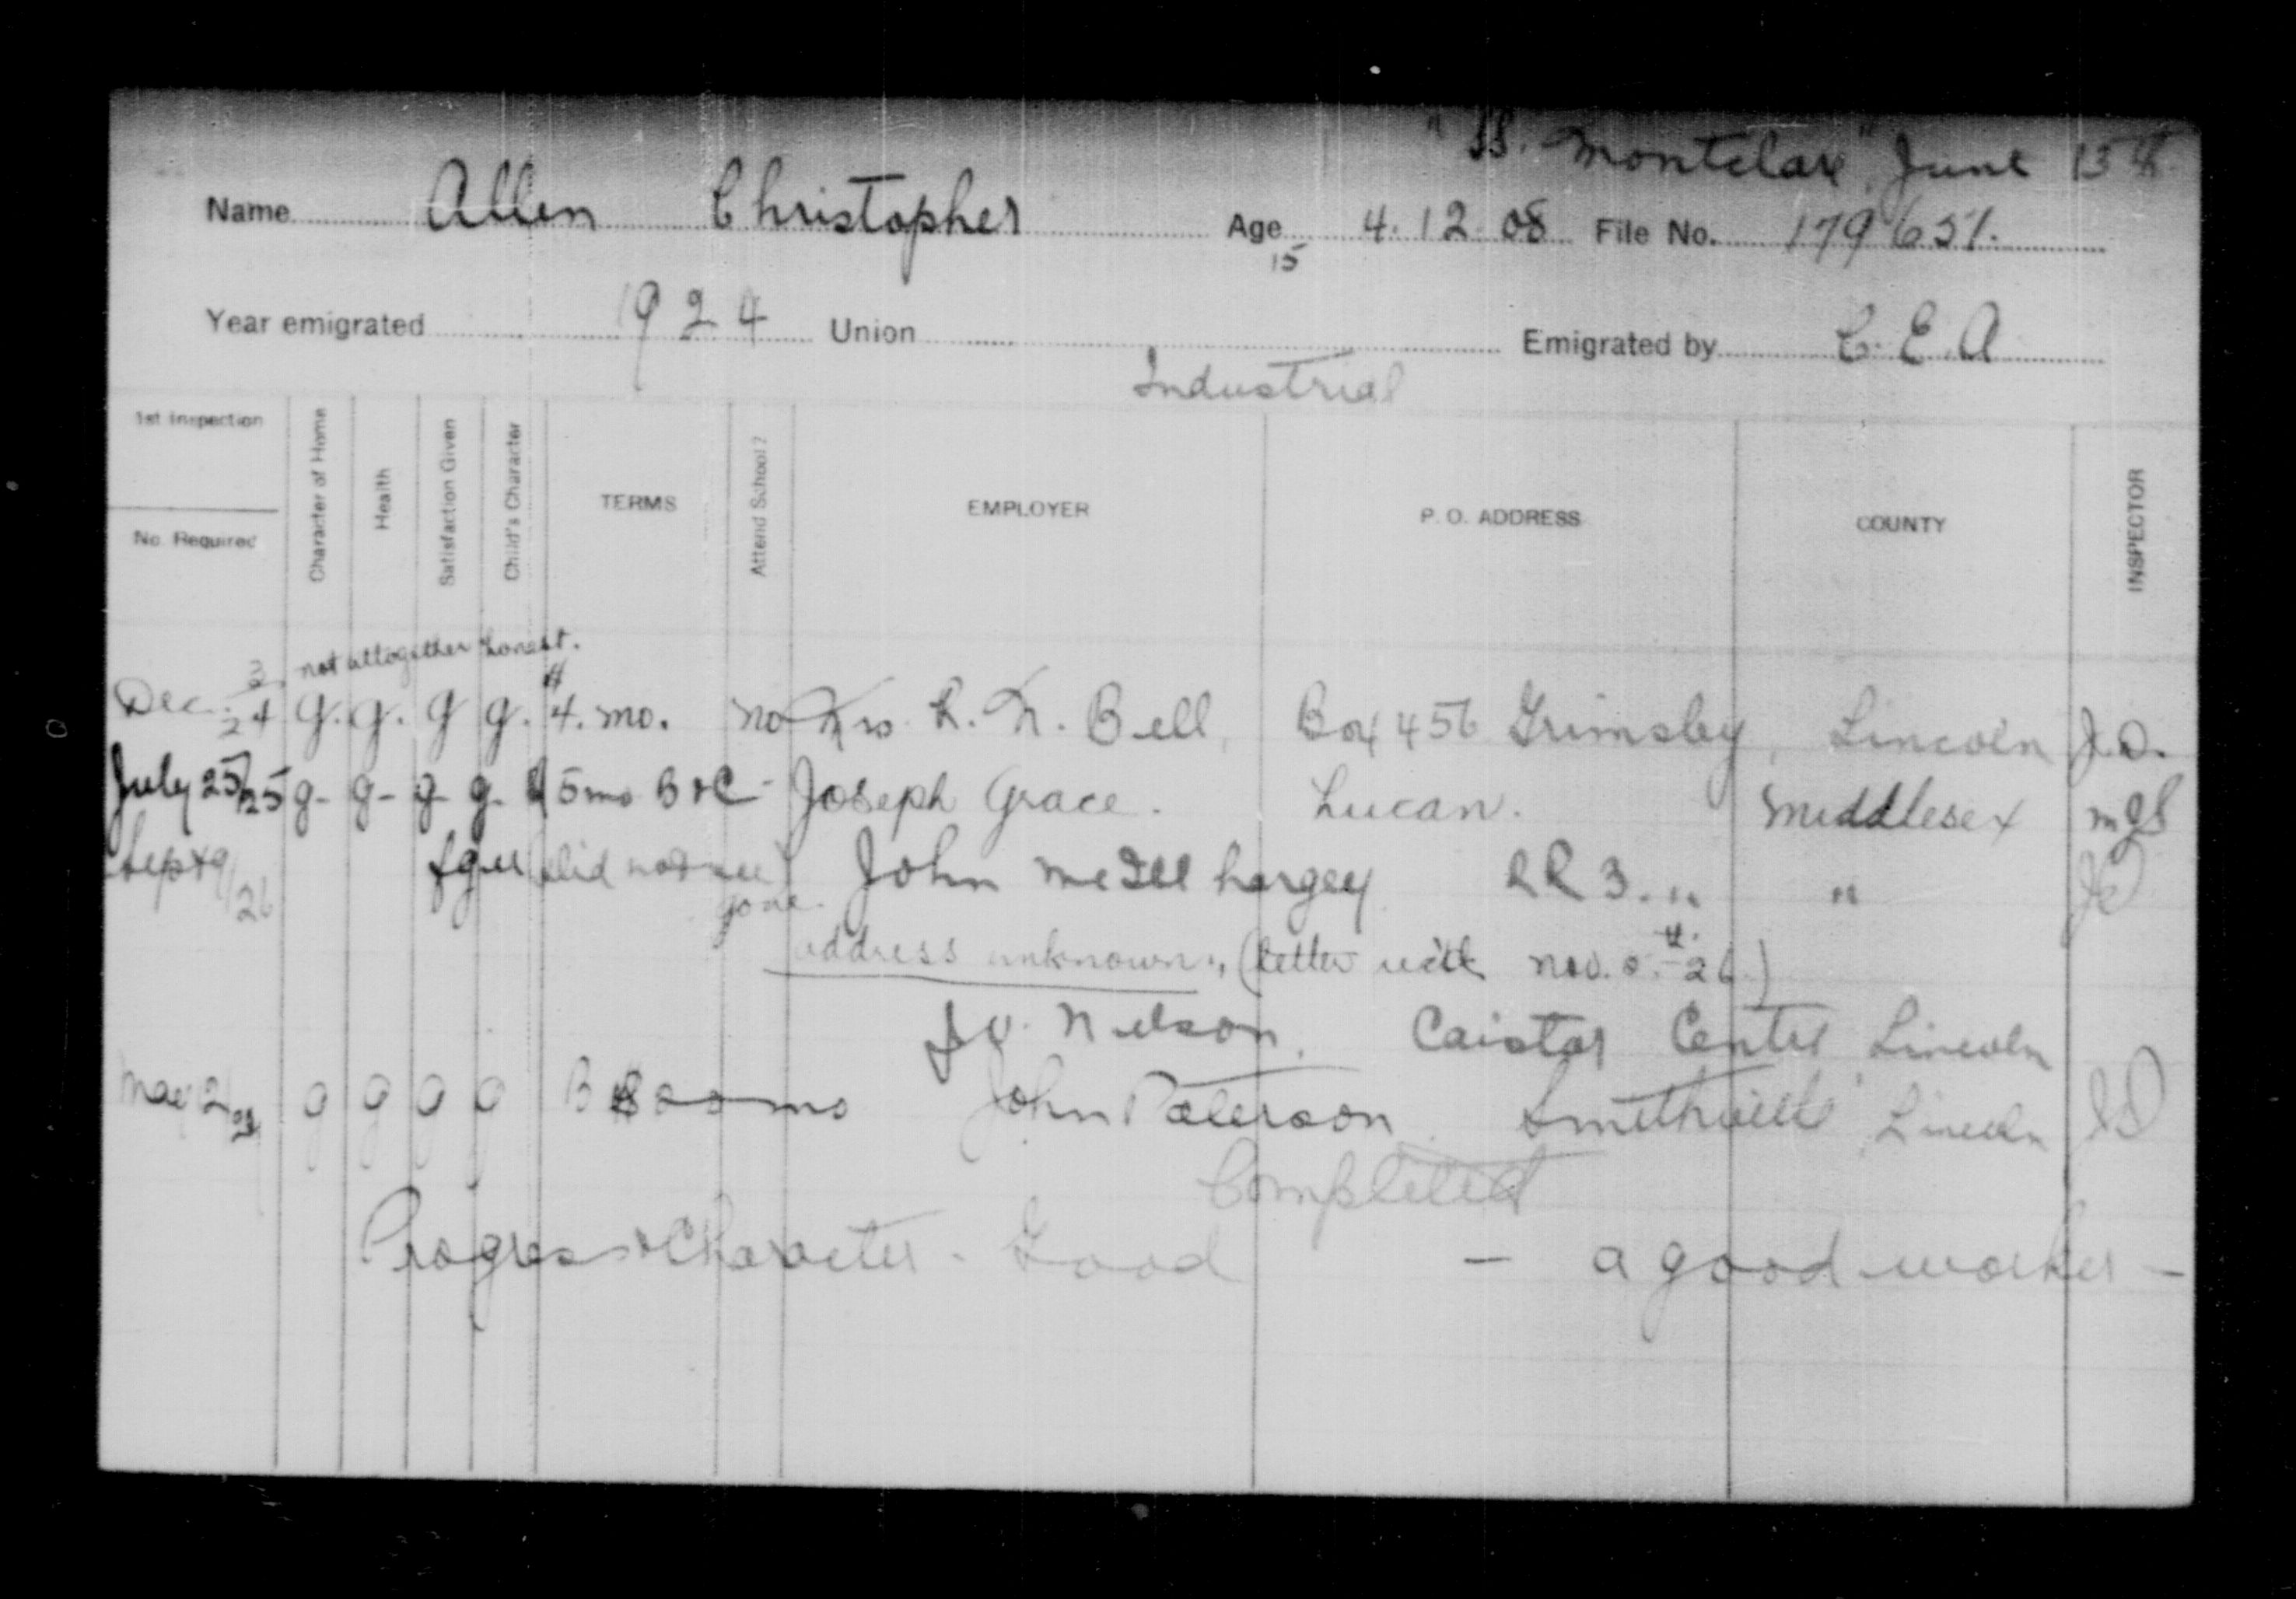 "SS. Montclare" June 15th
Name Allen Christopher Age 4.12.08 File No. 179651.
15
Year emigrated 1924 Union Emigrated by C.E.A
Industrial
1st Inspection
No. Required
Character of Home
Health
Satisfaction Given
Child's Character
TERMS
Attend School?
EMPLOYER
P. O. ADDRESS
COUNTY
INSPECTOR
not altogether honest.
Dec. 3/24 g. g. g g. $4. mo. no Mrs R. N. Bell, Box 456 Grimsby, Lincoln J.D.
July 25/25 g- g- g- g. 15 mo B&C - Joseph Grace. Lucan. Middlesex
Sept 9/26 (did not see) John McIllhargey RR 3. " "
gone.
address unknown, (letter Nov. 26)
Nelson, Caistor Center Lincoln
g g g g John Paterson Smithville Lincoln JD
Completed
Progress & Character - Good - a good worker -